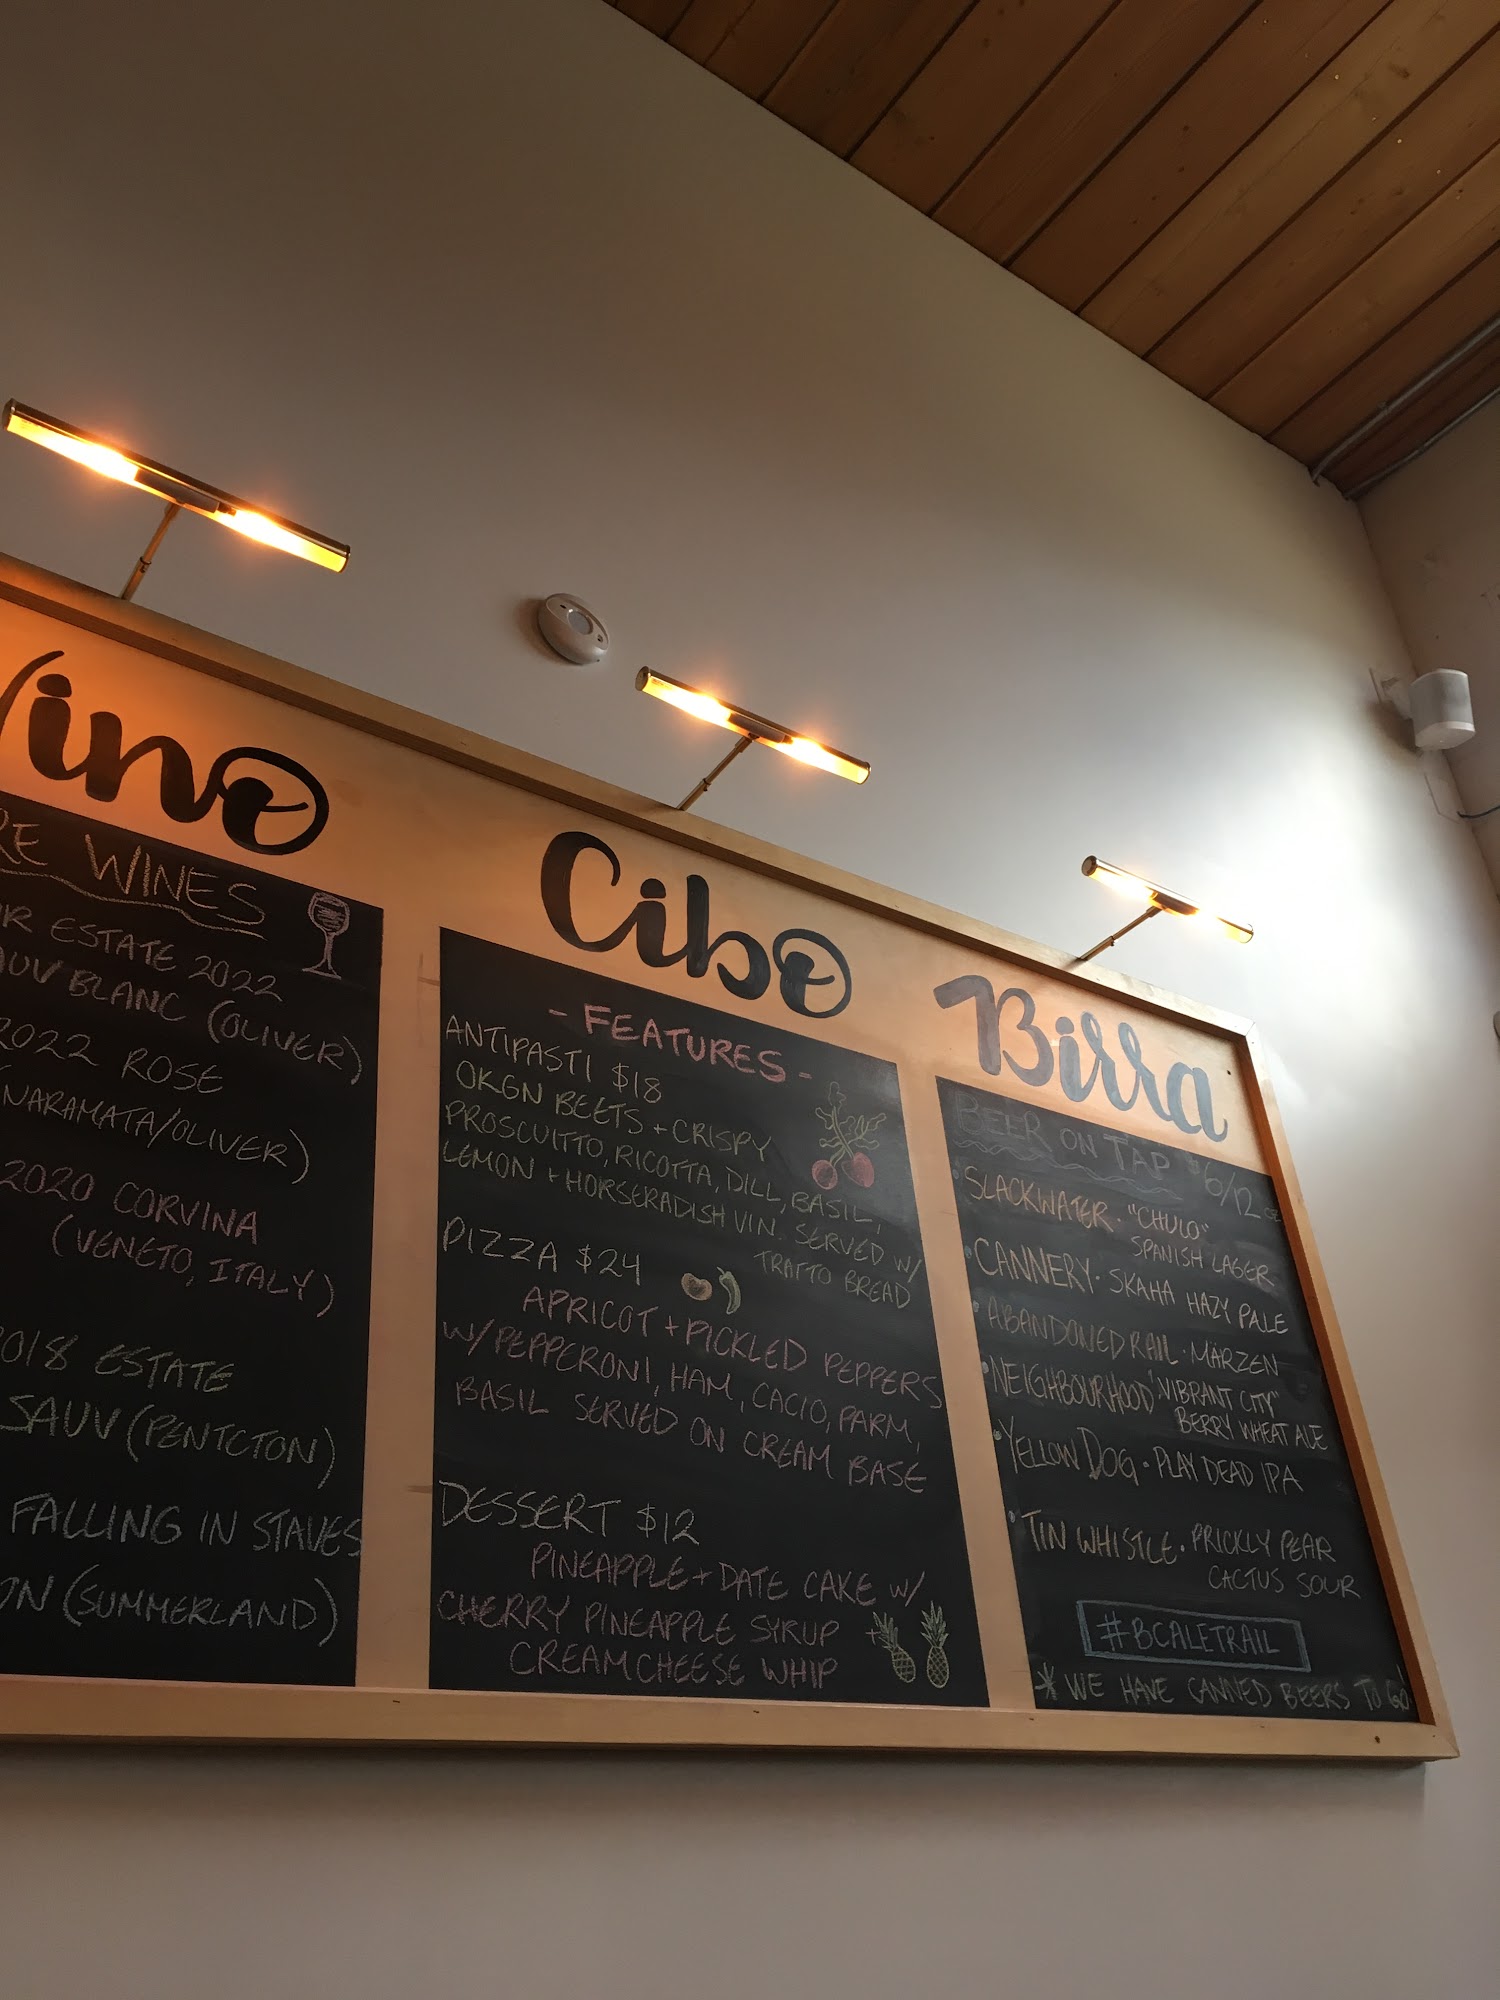 Vino
WINES
ESTATE 2022
BLANC (OLIVER)
2022 ROSE
(NARAMATA/OLIVER)
2020 CORVINA
(VENETO, ITALY)
2018 ESTATE
SAUV (PENTCTON)
FALLING IN STAVES
(SUMMERLAND)
Cibo
- FEATURES -
ANTIPASTI $18
OKGN BEETS + CRISPY
PROSCUITTO, RICOTTA, DILL, BASIL,
LEMON + HORSERADISH VIN. SERVED W/
TRATTO BREAD
PIZZA $24
APRICOT + PICKLED PEPPERS
W/ PEPPERONI, HAM, CACIO, PARM,
BASIL SERVED ON CREAM BASE
DESSERT $12
PINEAPPLE + DATE CAKE W/
CHERRY PINEAPPLE SYRUP +
CREAMCHEESE WHIP
Birra
BEER ON TAP $6/12oz
• SLACKWATER • "CHULO"
SPANISH LAGER
• CANNERY • SKAHA HAZY PALE
• ABANDONED RAIL • MARZEN
• NEIGHBOURHOOD "VIBRANT CITY"
BERRY WHEAT ALE
• YELLOW DOG • PLAY DEAD IPA
• TIN WHISTLE • PRICKLY PEAR
CACTUS SOUR
#BCALETRAIL
* WE HAVE CANNED BEERS TO GO!